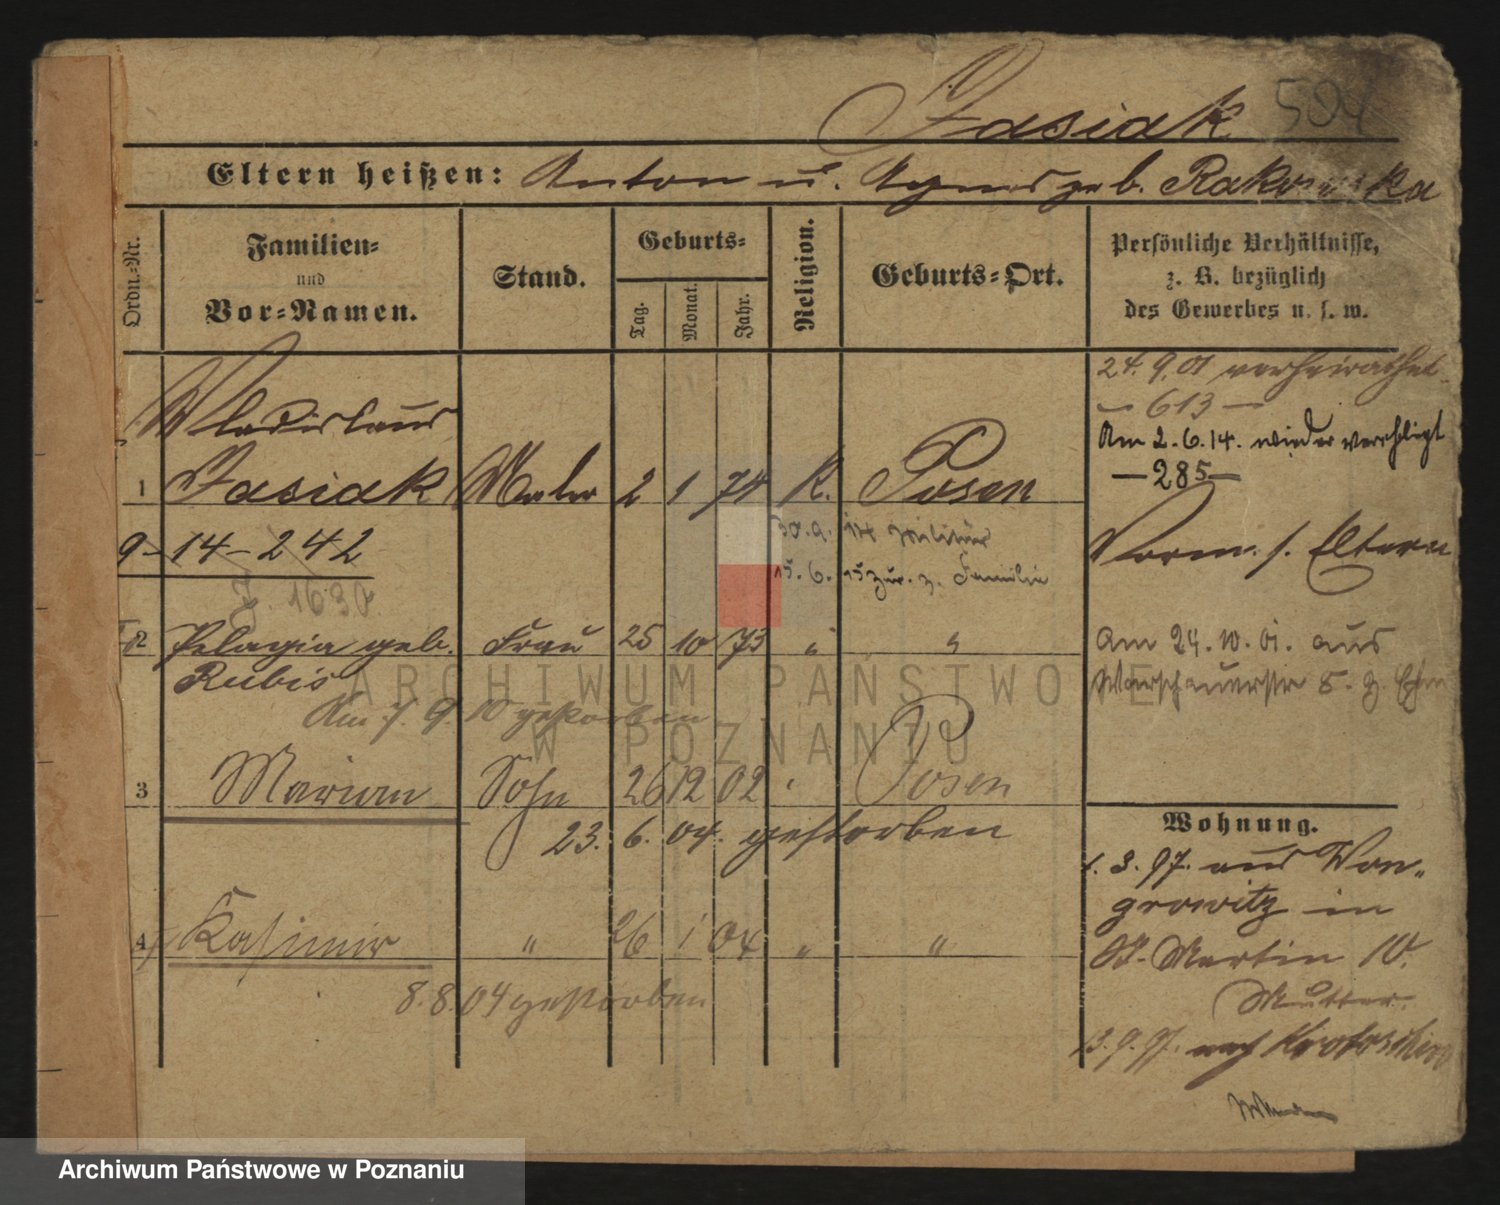 Jasiak 504
Eltern heißen: Anton u. Agnes geb. Rakowska
Ordn.-Nr.
Familien-
und
Vor-Namen.
Stand.
Geburts-
Tag.
Monat.
Jahr.
Religion.
Geburts-Ort.
Persönliche Verhältnisse,
z. B. bezüglich
des Gewerbes u. s. w.
24. 9. 01 verheirathet
— 613 —
Am 2. 6. 14. wieder verehligt
— 285 —
Wladislaus
1 Jasiak Maler 2 1 74 K. Posen
Vorm. s. Eltern
9-14-242
30. 9. 14 Militär
15. 6. 15 zur. z. Familie
J. 1630
2 Pelagia geb. Frau 25 10 73 " "
Rubis
Am 24. 10. 01. aus
Warschauerstr 5. z.
Am 7. 9. 10 gestorben
3 Marian Sohn 26 12 02 " Posen
23. 6. 04. gestorben
Wohnung.
1. 3. 97. aus Won-
growitz in
St. Martin 10.
Mutter.
13. 9. 97. nach Krotoschin
4 Kasimir " 26 1 04 " "
8. 8. 04 gestorben
ARCHIWUM PAŃSTWOWE
W POZNANIU
Archiwum Państwowe w Poznaniu